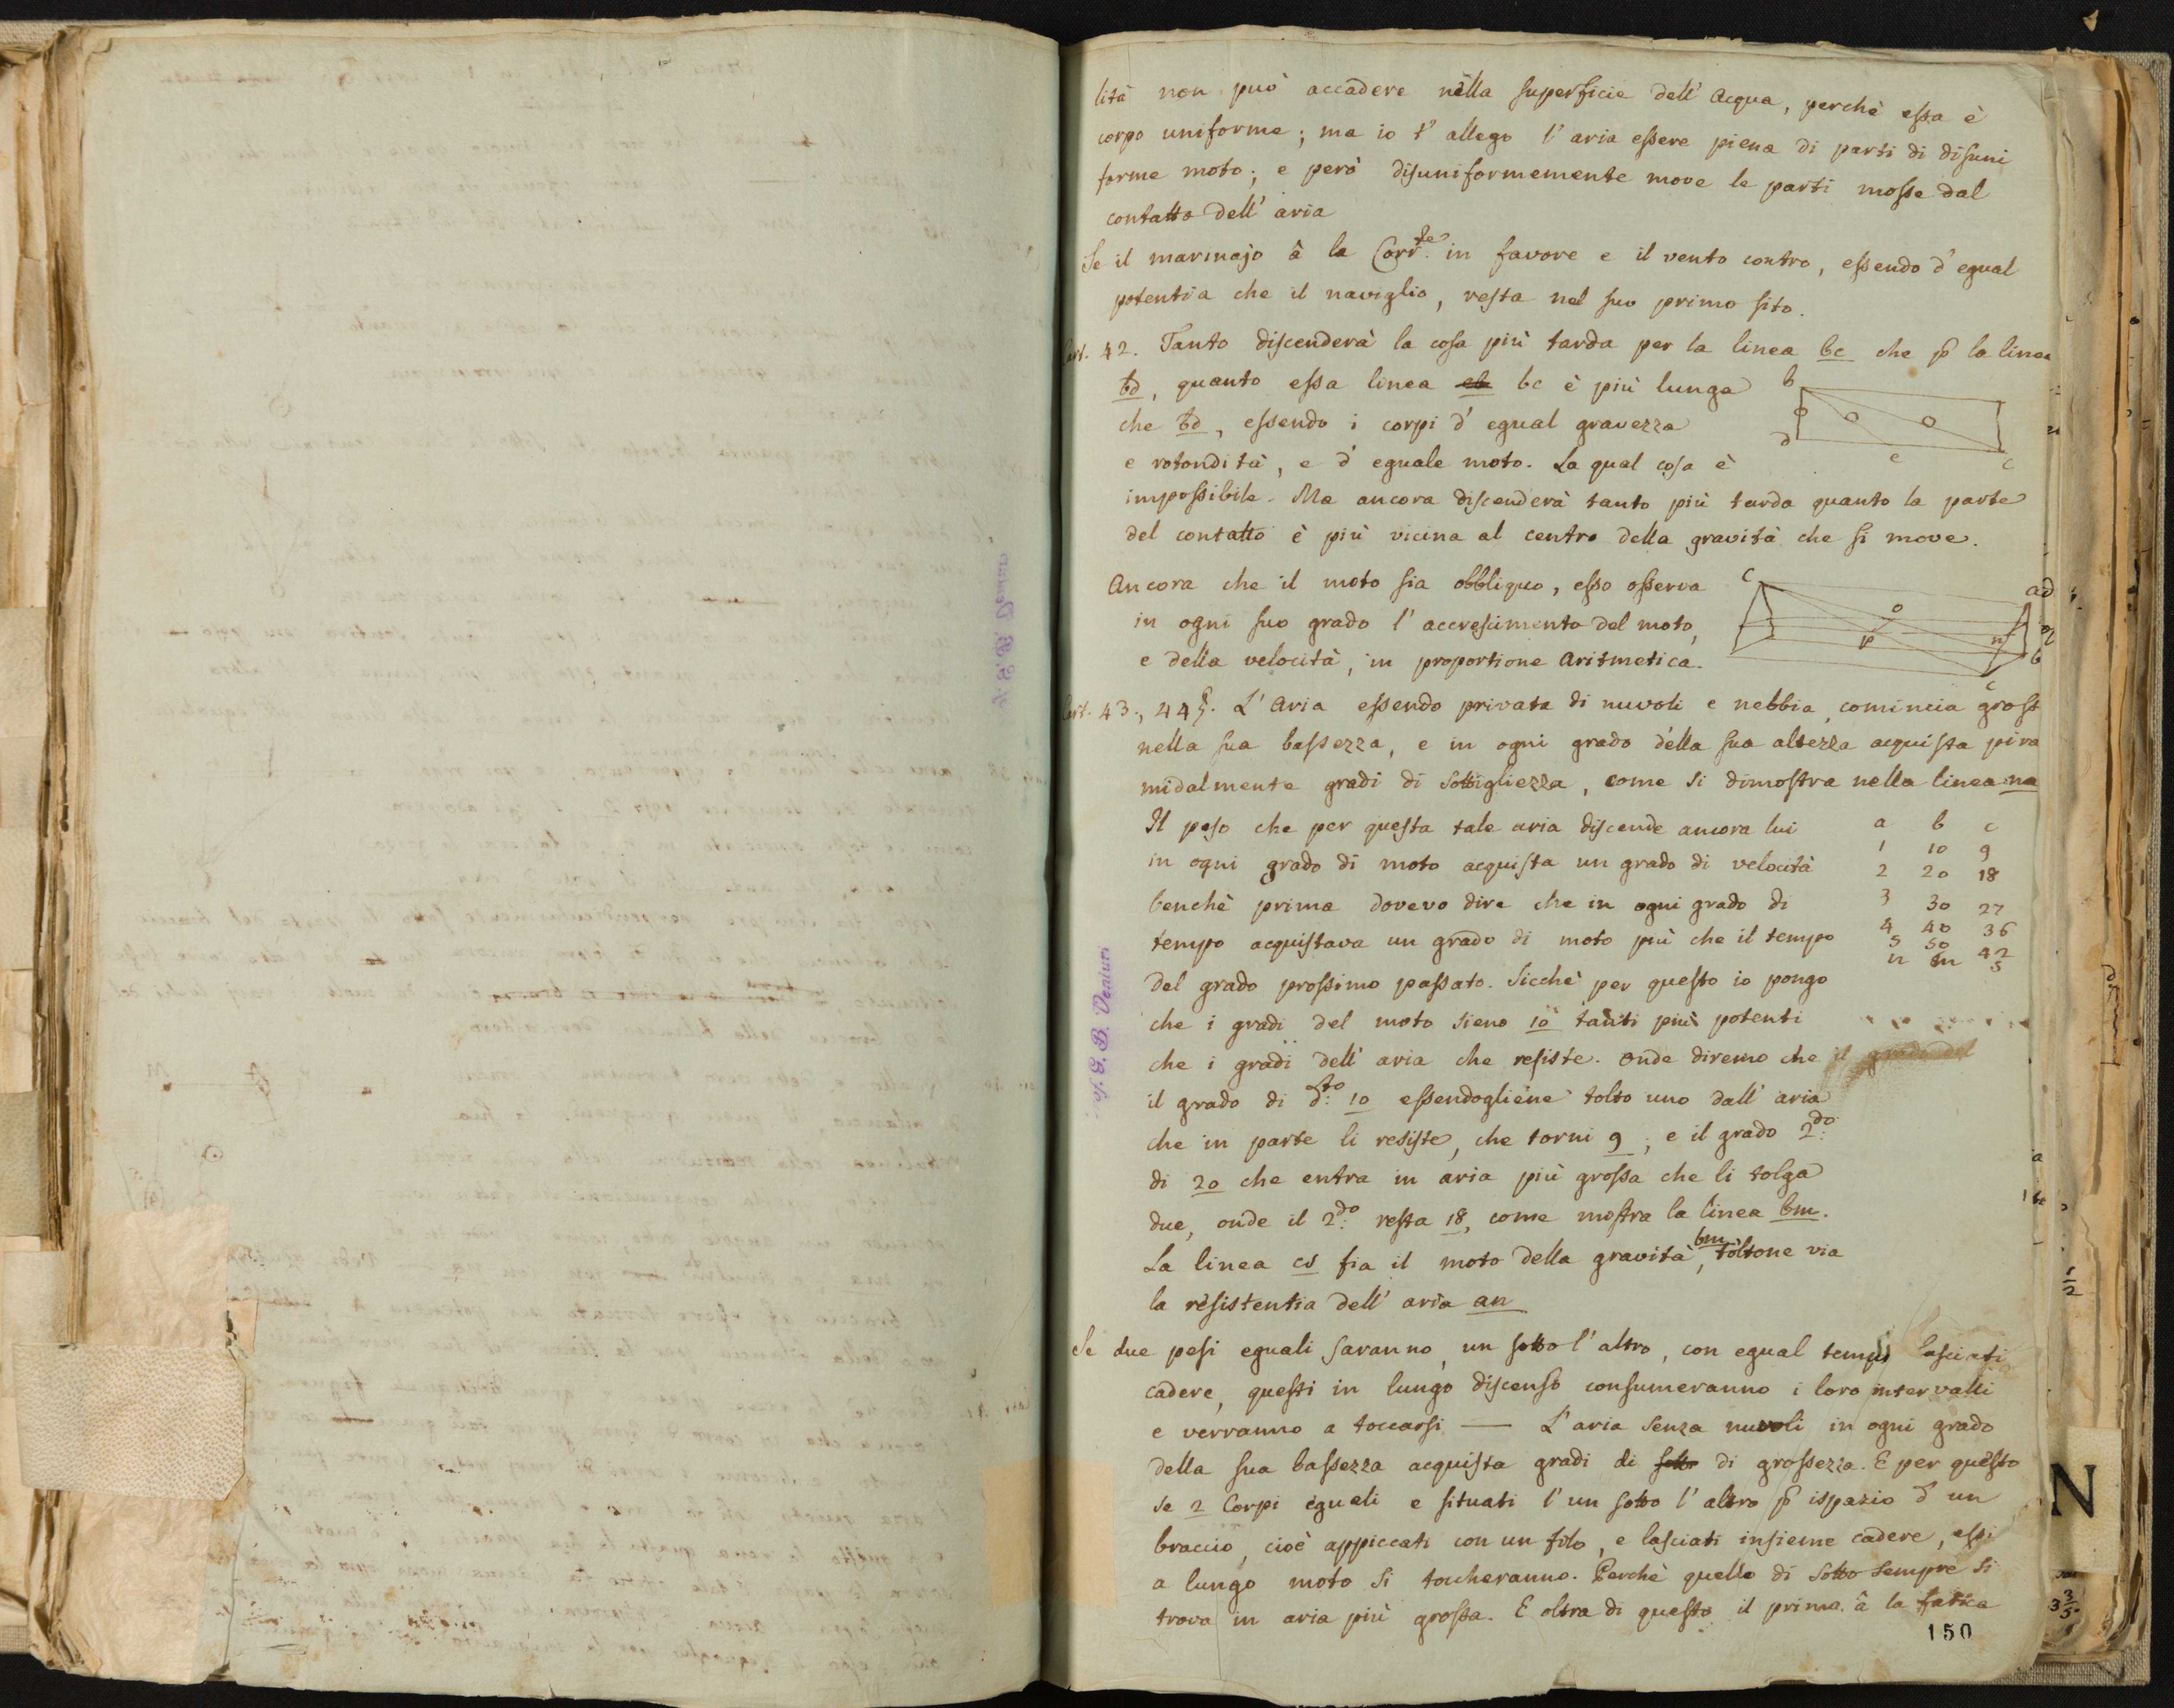 lità non può accadere nella superficie dell' acqua, perchè essa è
corpo uniforme; ma io t' allego l' aria essere piena di parti di disuni
forme moto; e però disuniformemente move le parti mosse dal
contatto dell' aria
Se il marinajo â la Corr.te in favore e il vento contro, essendo d' egual
potentia che il naviglio, resta nel suo primo sito.
Cart. 42. Tanto discenderà la cosa più tarda per la linea bc che p la linea
bd, quanto essa linea eb bc è più lunga
che bd, essendo i corpi d' egual gravezza
e rotondità, e d' eguale moto. La qual cosa è
impossibile. Ma ancora discenderà tanto più tarda quanto la parte
del contatto è più vicina al centro della gravità che si move.
b
d
e
c
Ancora che il moto sia obbliquo, esso osserva
in ogni suo grado l' accrescimento del moto,
e della velocità, in proportione Aritmetica.
c
o
p
n
ad
b
c
Cart. 43., 44. L' Aria essendo privata di nuvoli e nebbia, comincia gross
nella sua bassezza, e in ogni grado della sua altezza acquista pira
midalmente gradi di sottigliezza, come si dimostra nella linea na
Il peso che per questa tale aria discende ancora lui
in ogni grado di moto acquista un grado di velocità
benchè prima dovevo dire che in ogni grado di
tempo acquistava un grado di moto più che il tempo
del grado prossimo passato. Sicchè per questo io pongo
che i gradi del moto sieno 10 tanti più potenti
che i gradi dell' aria che resiste. Onde diremo che il grado del
il grado di d:to 10 essendogliene tolto uno dall' aria
che in parte li resiste, che torni 9; e il grado 2do:
di 20 che entra in aria più grossa che li tolga
due, onde il 2do: resta 18, come mostra la linea bm.
La linea cs fia il moto della gravità bm, toltone via
la resistentia dell' aria an
a b c
1 10 9
2 20 18
3 30 27
4 40 36
5 50 42
n m s
Se due pesi eguali saranno, un sotto l' altro, con egual tempo lasciati
cadere, questi in lungo discenso consumeranno i loro intervalli
e verranno a toccarsi — L' aria senza nuvoli in ogni grado
della sua bassezza acquista gradi di sotto di grossezza. E per questo
se 2 Corpi eguali e situati l' un sotto l' altro p ispazio d' un
braccio, cioè appiccati con un filo, e lasciati insieme cadere, essi
a lungo moto si toccheranno. Perchè quello di sotto sempre si
trova in aria più grossa. E oltra di questo il prima â la fatica
150
of. G. B. Venturi
N